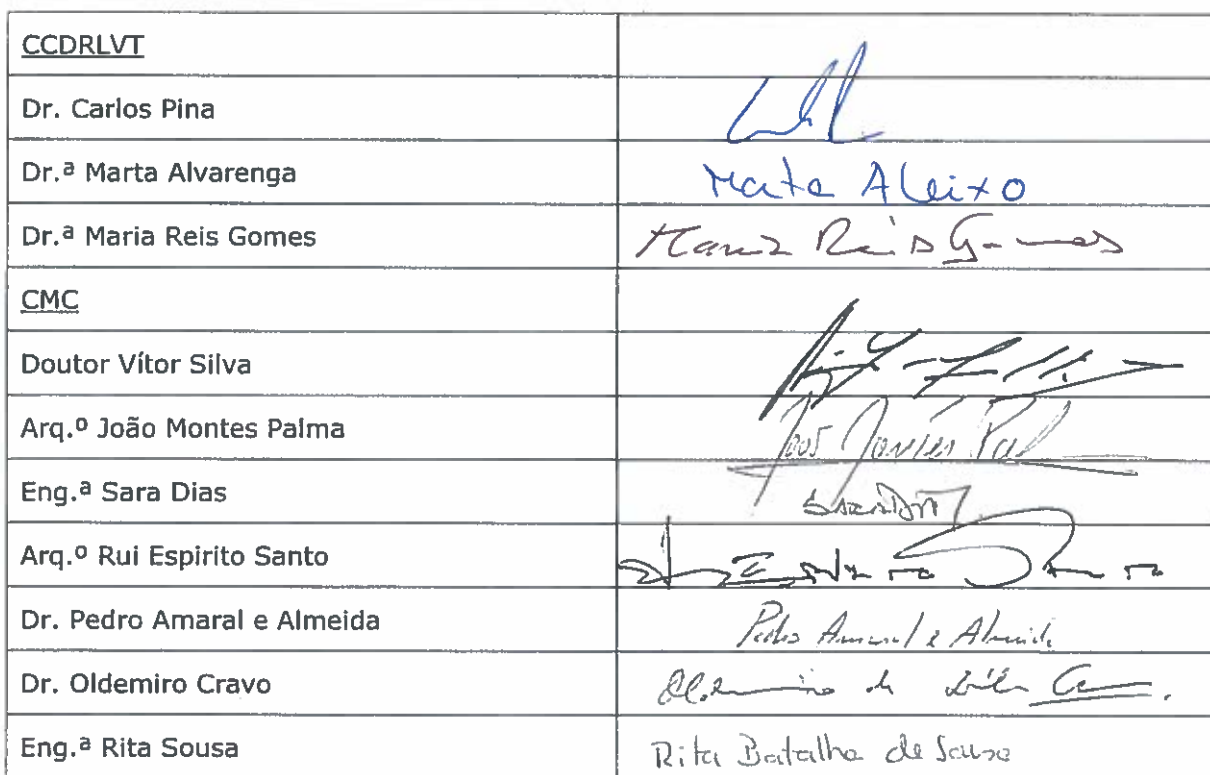 CCDRLVT
Dr. Carlos Pina
Dr.ª Marta Alvarenga
Marta Aleixo
Dr.ª Maria Reis Gomes
Maria Reis Gomes
CMC
Doutor Vítor Silva
Arq.º João Montes Palma
Eng.ª Sara Dias
Arq.º Rui Espirito Santo
Dr. Pedro Amaral e Almeida
Pedro Amaral e Almeida
Dr. Oldemiro Cravo
Eng.ª Rita Sousa
Rita Batalha de Sousa